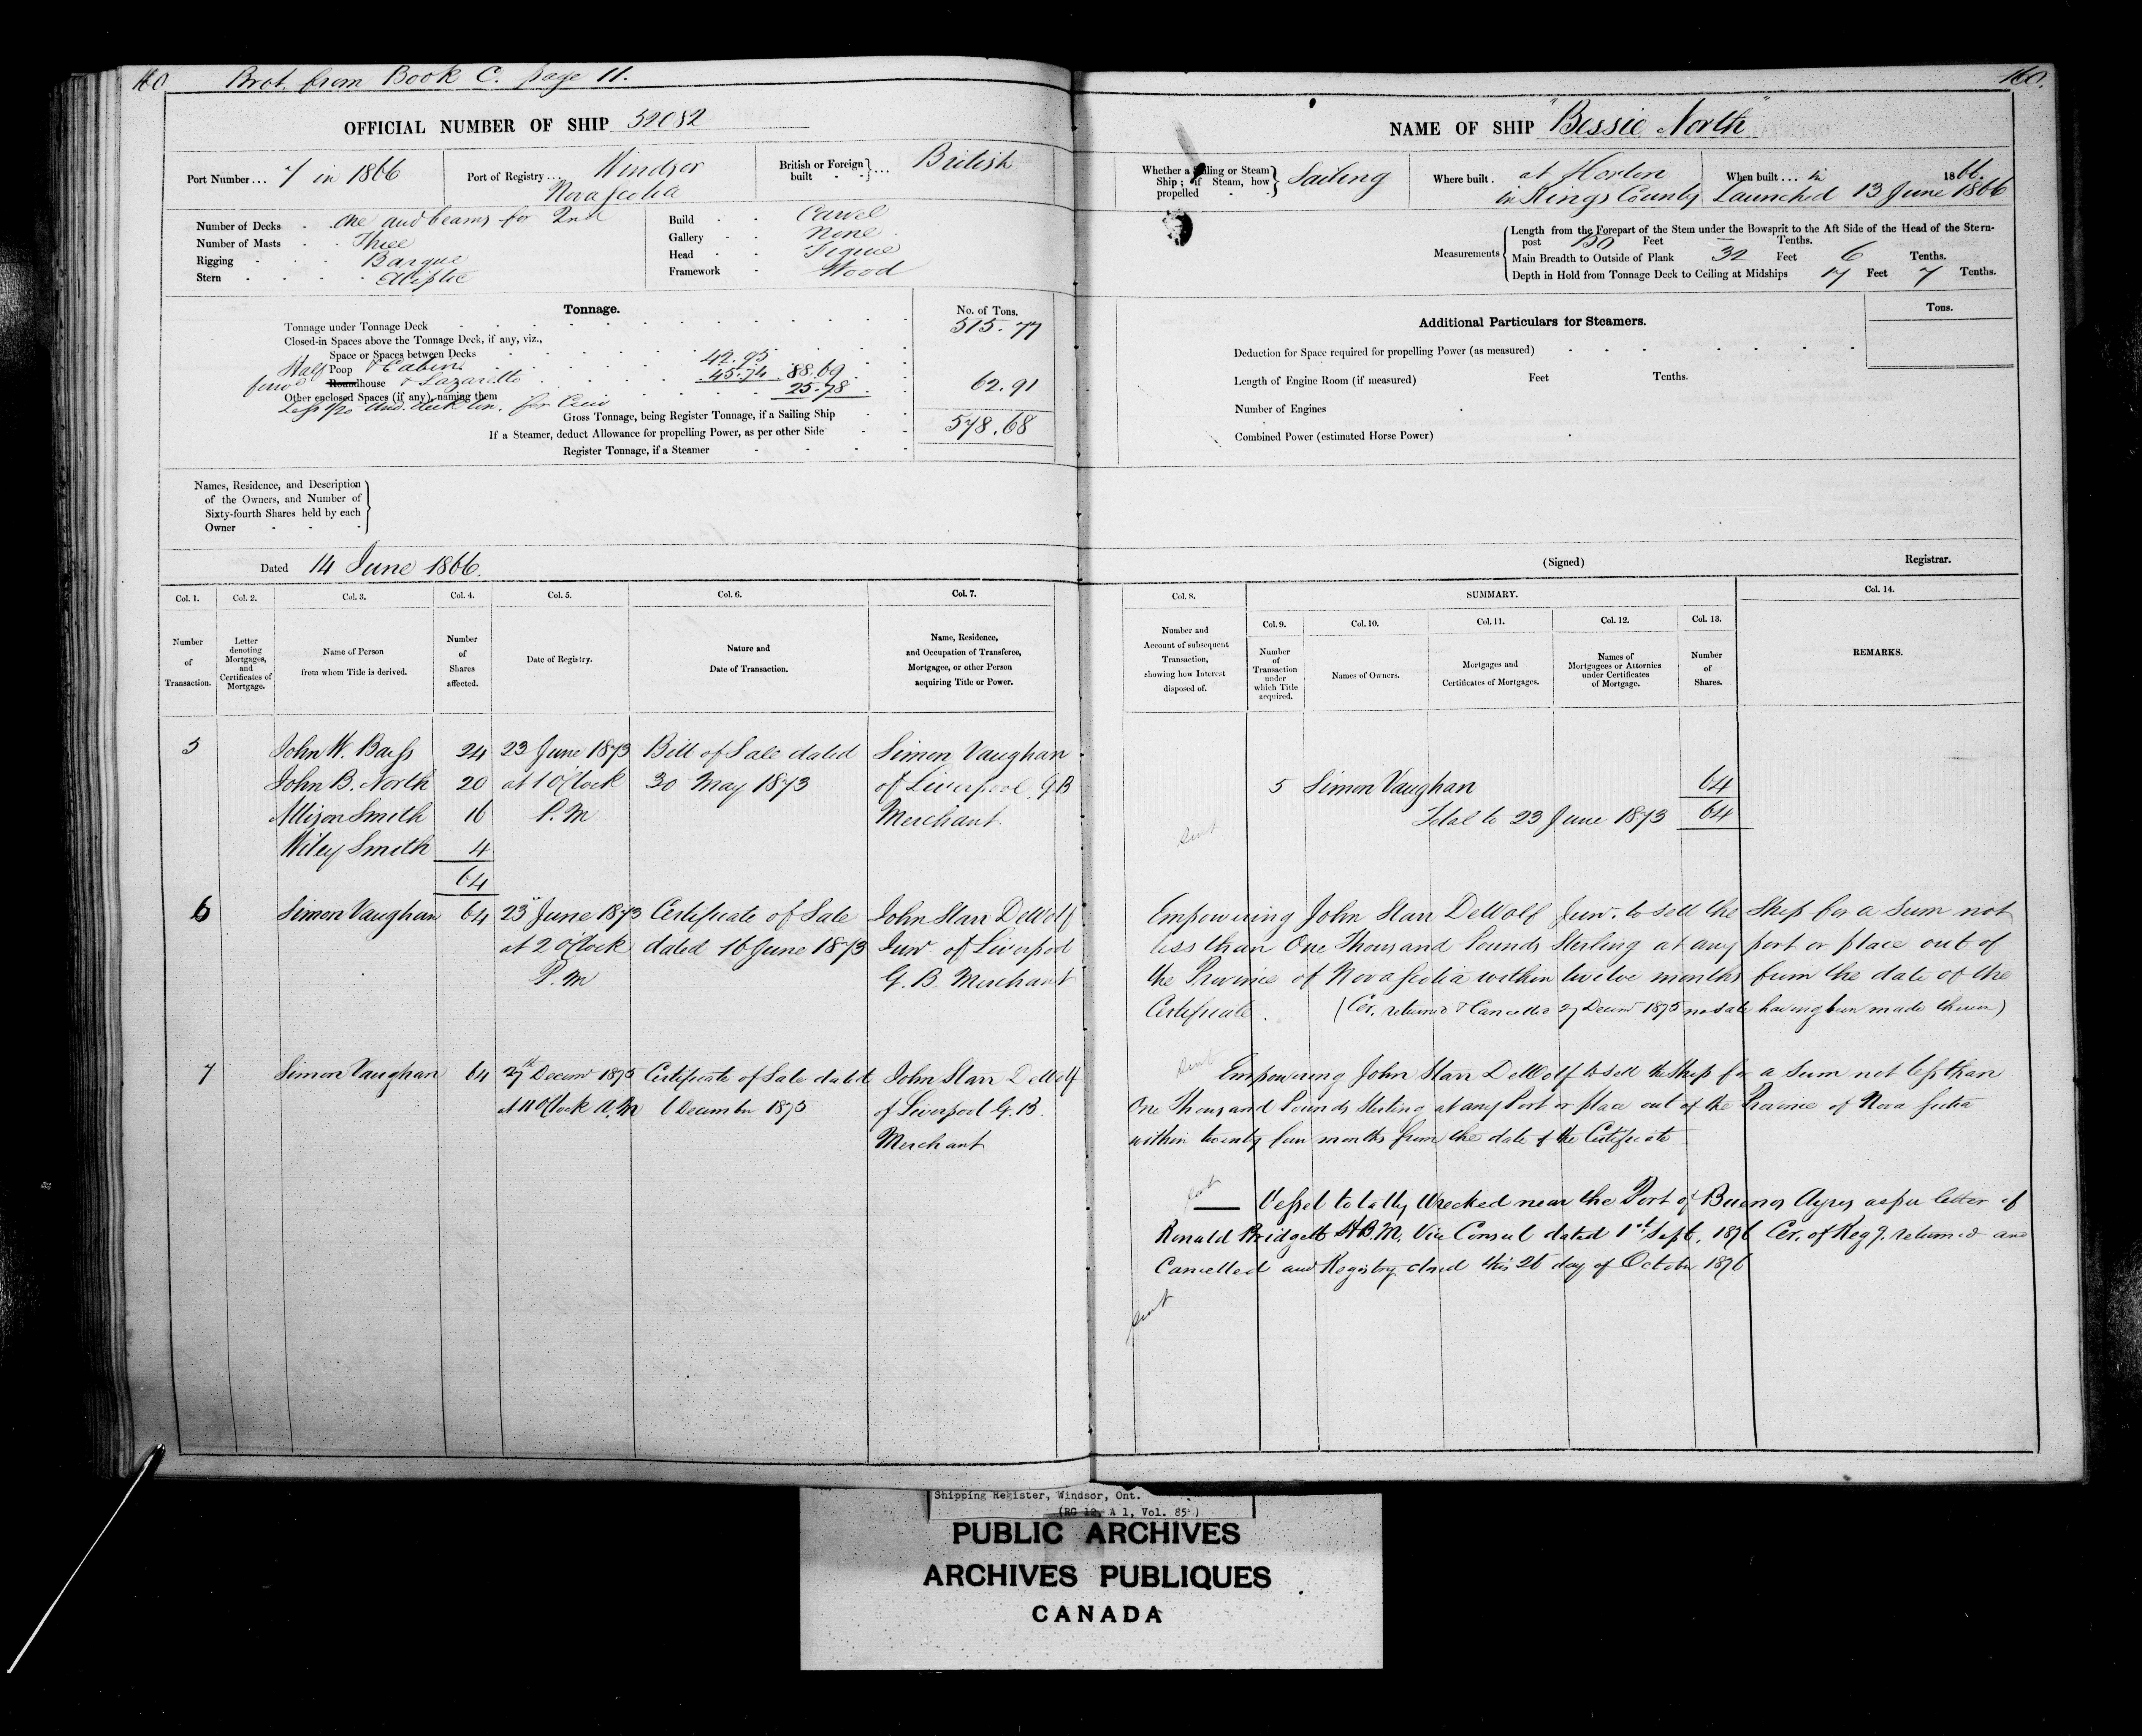 160 Brot. from Book C. page 11.
OFFICIAL NUMBER OF SHIP 52082
Port Number... 7 in 1866
Port of Registry... Windsor
Nova Scotia
British or Foreign built ... British
Number of Decks One and beams for 2nd
Number of Masts Three
Rigging Barque
Stern Eliptic
Build Carvel
Gallery None
Head Figure
Framework Wood
Tonnage.
No. of Tons.
Tonnage under Tonnage Deck 515.77
Closed-in Spaces above the Tonnage Deck, if any, viz.,
Space or Spaces between Decks 42.95
Half Poop & Cabin 45.74 88.69
Roundhouse & Lazaretto 25.78 62.91
Other enclosed Spaces (if any), naming them
Less 1/20 und. deck ton. for Crew
Gross Tonnage, being Register Tonnage, if a Sailing Ship 578.68
If a Steamer, deduct Allowance for propelling Power, as per other Side
Register Tonnage, if a Steamer
Names, Residence, and Description
of the Owners, and Number of
Sixty-fourth Shares held by each
Owner
Dated 14 June 1866.
Col. 1. Col. 2. Col. 3. Col. 4. Col. 5. Col. 6. Col. 7.
Number of Transaction.
Letter denoting Mortgages, and Certificates of Mortgage.
Name of Person from whom Title is derived.
Number of Shares affected.
Date of Registry.
Nature and Date of Transaction.
Name, Residence, and Occupation of Transferee, Mortgagee, or other Person acquiring Title or Power.
5 John W. Bass 24 23 June 1873 Bill of Sale dated Simon Vaughan
John B. North 20 at 1 O'Clock 30 May 1873 of Liverpool G.B
Allison Smith 16 P.M Merchant.
Wiley Smith 4
64
6 Simon Vaughan 64 23rd June 1873 Certificate of Sale John Starr DeWolf
at 2 o'Clock dated 16 June 1873 Junr of Liverpool
P.M G. B. Merchant
7 Simon Vaughan 64 27th Decemr 1875 Certificate of Sale dated John Starr DeWolf
at 11 O'Clock A.M 6 December 1875 of Liverpool G.B.
Merchant
160.
NAME OF SHIP "Bessie North"
Whether a Sailing or Steam Ship; if Steam, how propelled Sailing
Where built. at Horton
in Kings County
When built... in 1866.
Launched 13 June 1866
Measurements
Length from the Forepart of the Stem under the Bowsprit to the Aft Side of the Head of the Stern-
post 130 Feet Tenths.
Main Breadth to Outside of Plank 32 Feet 6 Tenths.
Depth in Hold from Tonnage Deck to Ceiling at Midships 17 Feet 7 Tenths.
Additional Particulars for Steamers.
Tons.
Deduction for Space required for propelling Power (as measured)
Length of Engine Room (if measured) Feet Tenths.
Number of Engines
Combined Power (estimated Horse Power)
(Signed) Registrar.
Col. 8. SUMMARY. Col. 14.
Col. 9. Col. 10. Col. 11. Col. 12. Col. 13.
Number and Account of subsequent Transaction, showing how Interest disposed of.
Number of Transaction under which Title acquired.
Names of Owners.
Mortgages and Certificates of Mortgages.
Names of Mortgagees or Attornies under Certificates of Mortgage.
Number of Shares.
REMARKS.
5 Simon Vaughan 64
Total to 23 June 1873 64
sent
Empowering John Starr DeWolf Junr. to sell the Ship for a Sum not
less than One Thousand Pounds Sterling at any port or place out of
the Province of Nova Scotia within twelve months from the date of the
Certificate. (Cer. returned & Cancelled 27 Decemr 1875 no sale having been made therein)
sent
Empowering John Starr DeWolf to sell the Ship for a sum not less than
One Thousand Pounds Sterling at any Port or place out of the Province of Nova Scotia
within twenty four months from the date of the Certificate
sent
Vessel totally wrecked near the Port of Buenos Ayres as per letter of
Ronald Bridgett H.B.M. Vice Consul dated 1st Sept. 1876 Cer. of Regy. returned and
Cancelled and Registry closed this 26 day of October 1876
sent
Shipping Register, Windsor, Ont.
(RG 12, A 1, Vol. 85 )
PUBLIC ARCHIVES
ARCHIVES PUBLIQUES
CANADA